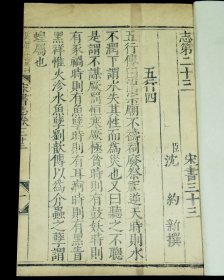 志第二十三 宋書三十三
臣沈約新撰
五行四
五行傳曰簡宗廟不禱祠廢祭祀逆天時則水
不潤下謂水失其性而為災也又曰聽之不聰
是謂不謀厥罰恒寒厥極貧時則有鼓妖時則
有魚孽時則有豕禍時則有耳痾時則有黑眚
黑祥惟火沴水魚孽劉歆傳以為介蟲之孽謂
蝗屬也